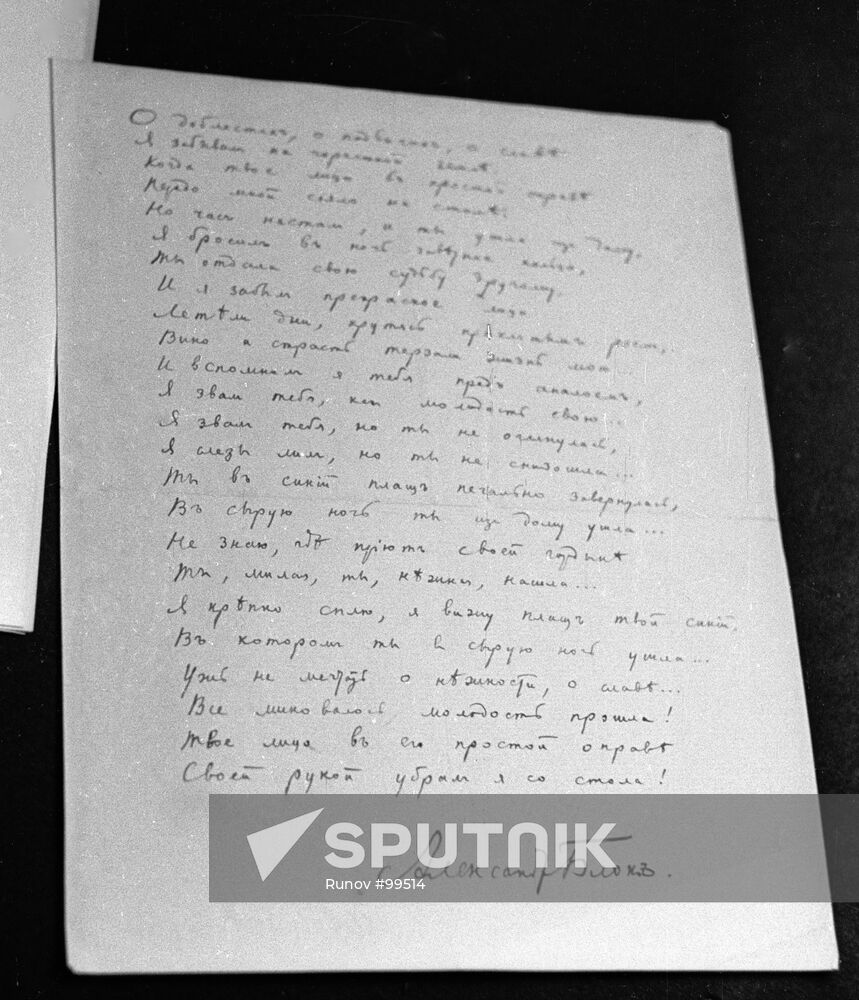 О доблестяхъ, о подвигахъ, о славѣ
Я забывалъ на горестной землѣ,
Когда твое лицо въ простой оправѣ
Передо мной сіяло на столѣ.
Но часъ насталъ, и ты ушла изъ дому,
Я бросилъ въ ночь завѣтное кольцо,
Ты отдала свою судьбу другому,
И я забылъ прекрасное лицо.
Летѣли дни, крутясь проклятымъ роемъ...
Вино и страсть терзали жизнь мою...
И вспомнилъ я тебя предъ аналоемъ,
Я звалъ тебя, какъ молодость свою...
Я звалъ тебя, но ты не оглянулась,
Я слезы лилъ, но ты не снизошла...
Ты въ синій плащъ печально завернулась,
Въ сырую ночь ты изъ дому ушла...
Не знаю, гдѣ пріютъ своей гордынѣ
Ты, милая, ты, нѣжная, нашла...
Я крѣпко сплю, я вижу плащъ твой синій,
Въ которомъ ты въ сырую ночь ушла...
Ужъ не мечтать о нѣжности, о славѣ...
Все миновалось, молодость прошла!
Твое лицо въ его простой оправѣ
Своей рукой убралъ я со стола!
Александръ Блокъ.
SPUTNIK
Runov #99514